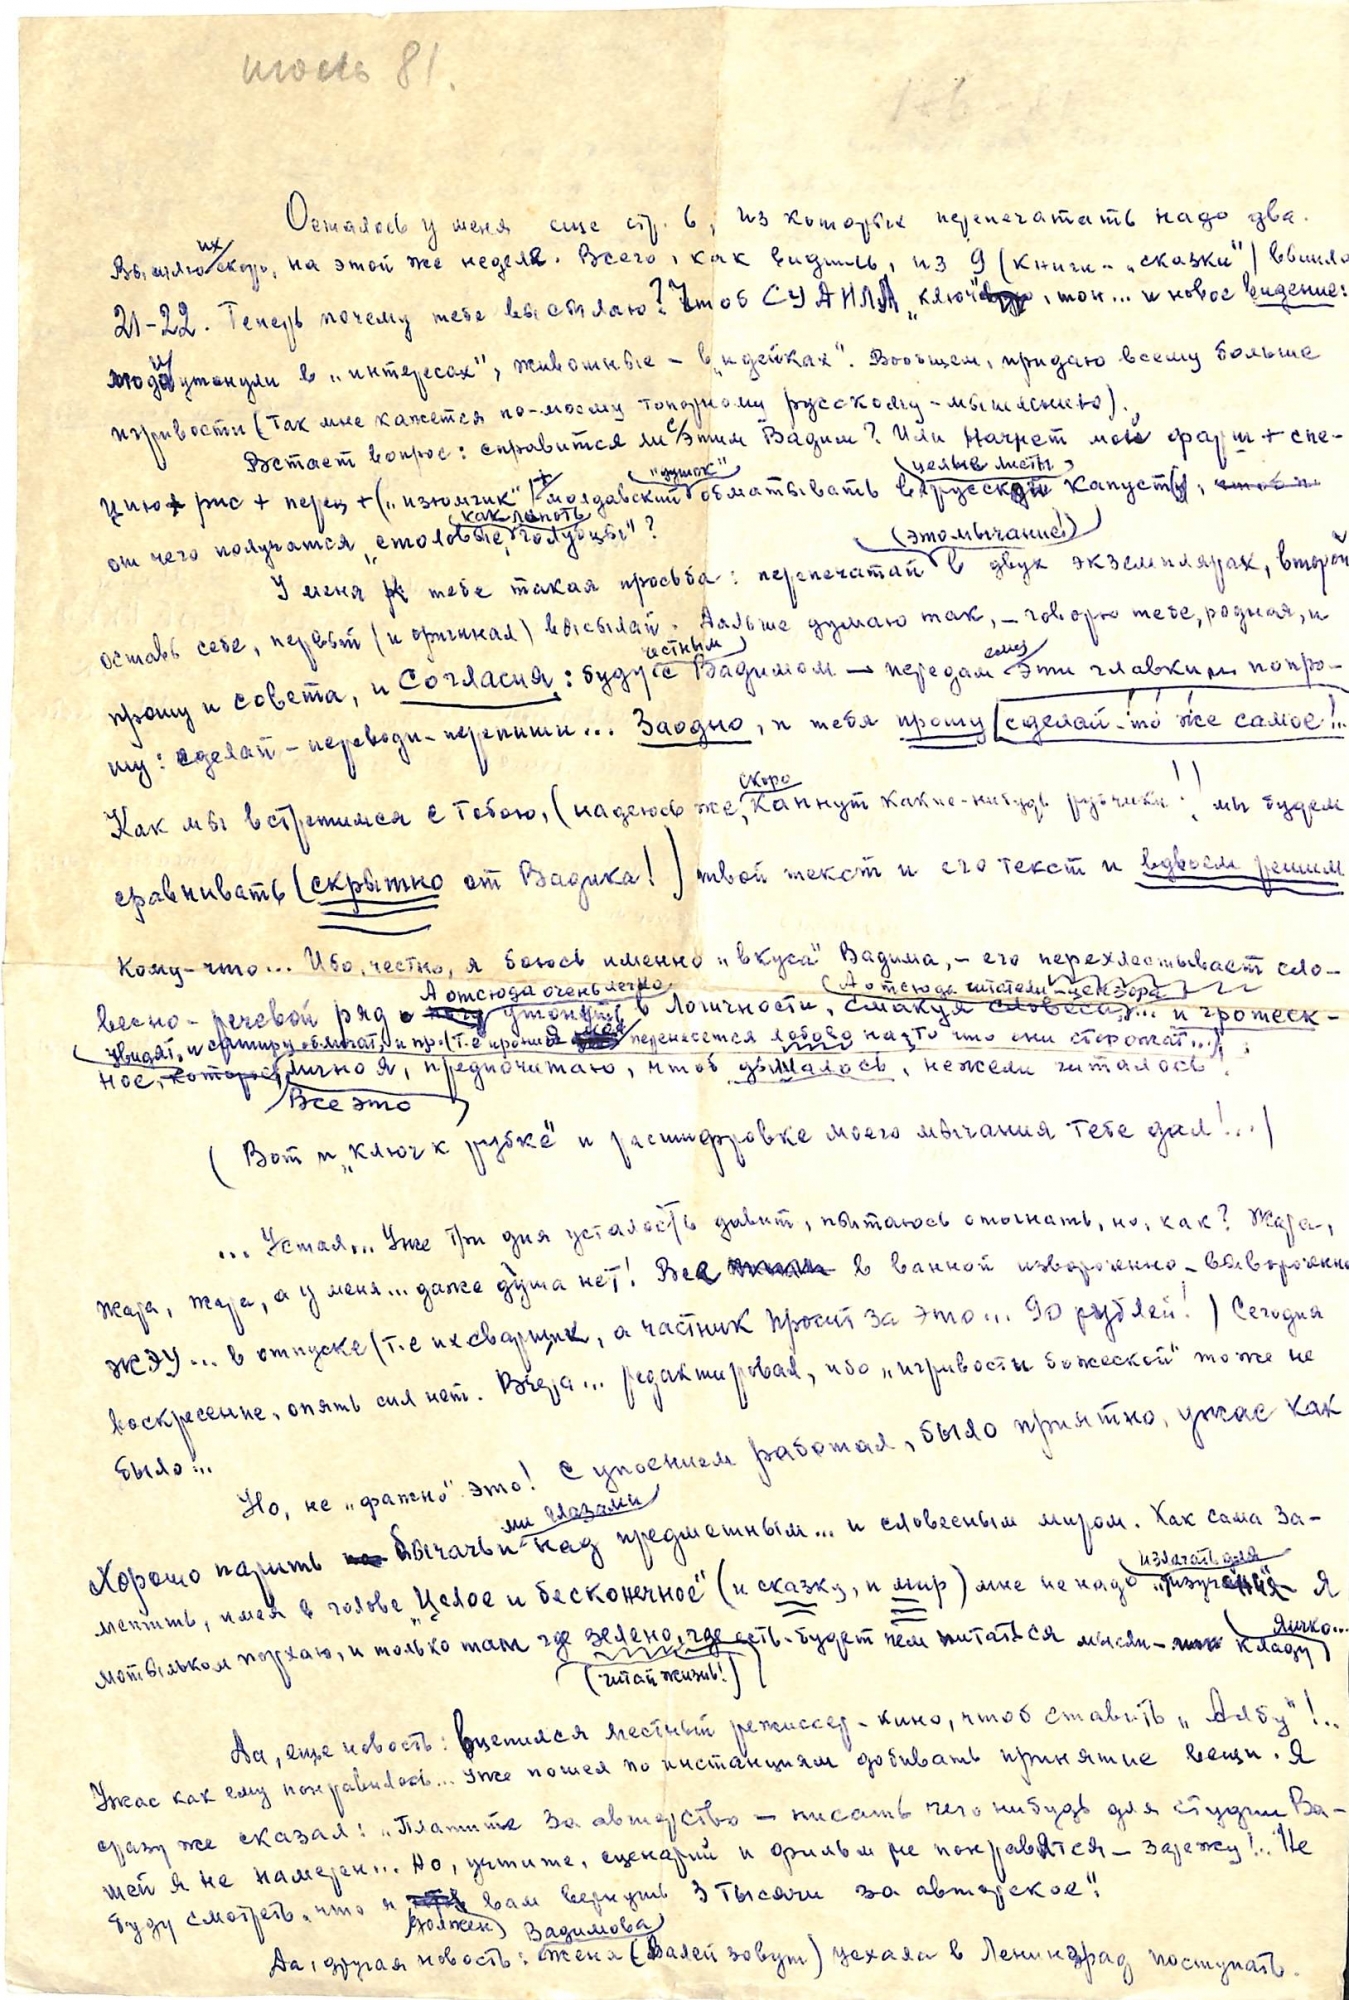 июль 81.
Осталось у меня еще стр. 6, из которых перепечатать надо два.
Вышлю их скоро, на этой же неделе. Всего, как видишь, из 9 (книги - „сказки") вышло
21-22. Теперь почему тебе высылаю? Чтоб СУДИЛА „ключ", тон... и новое видение:
люди утонули в „интересах", животные - в „идейках". Вообщем, придаю всему больше
игривости (так мне кажется по-моему топорному русскому - мышлению).
Встает вопрос: справится ли с этим Вадим? Или начнет мой фарш + спе-
цию + рис + перец + („изюмчик") + молдавский „душок" обматывать в целые листы русской капусты,
от чего получатся „столовые, как лапоть голубцы"?
У меня к тебе такая просьба: перепечатай (это мычание) в двух экземплярах, второй
оставь себе, первый (и оригинал) высылай. Дальше думаю так, - говорю тебе, родная, и
прошу и совета, и согласия: буду с честным Вадимом - передам ему эти главки и попро-
шу: сделай - переводи - перепиши... Заодно, и тебя прошу сделай - то же самое!..
Как мы встретимся с тобою, (надеюсь же, скоро капнут какие-нибудь рубчики!! мы будем
сравнивать (скрытно от Вадика!) твой текст и его текст и вдвоем решим
кому-что... Ибо, честно, я боюсь именно „вкуса" Вадима, - его перехлестывает сло-
весно - речевой ряд А отсюда очень легко утонуть в логичности, смакуя словеса,... и гротеск-
(А отсюда читатели - цензора
увидят, и сатиру обличат, и пр. (т.е. ирония моя перенесется лобово на то что они сторожат...)
ное, Все это лично я, предпочитаю, чтоб дышалось, нежели читалось!
(Вот и „ключ к рубке" и расшифровке моего мычания тебе дал!...)
... Устал... Уже три дня усталость давит, пытаюсь отогнать, но, как? Жара,
жара, жара, а у меня... даже душа нет! Все в ванной изворочено - выворочено
ЖЭУ... в отпуске (т.е их сварщик, а частник просит за это... 90 рублей!) Сегодня
воскресение, опять сил нет. Вчера... редактировал, ибо „игривости божеской" тоже не
было...
Но, не „фажно" это! С упоением работал, было приятно, ужас как
хорошо парить бычачьи-ми глазами над предметным... и словесным миром. Как сама за-
метишь, имея в голове „Целое и бесконечное" (и сказку, и мир) мне не надо излагать для „изучения" - я
мотыльком порхаю, и только там где зелено, где есть - будет чем питаться мысли - кладу яичко...
(читай жизнь!)
Да, еще новость: вцепился местный режиссер - кино, чтоб ставить „Албу"!..
Ужас как ему понравилось... Уже пошел по инстанциям добивать принятие вещи. Я
сразу же сказал: „Платите за авторство - писать чего нибудь для студии Ва-
шей я не намерен... Но, учтите, сценарий и фильм не понравятся - зарежу!.. Не
буду смотреть, что я должен вам вернуть 3 тысячи за авторское".
Да, другая новость: жена Вадимова (Валей зовут) уехала в Ленинград поступать.